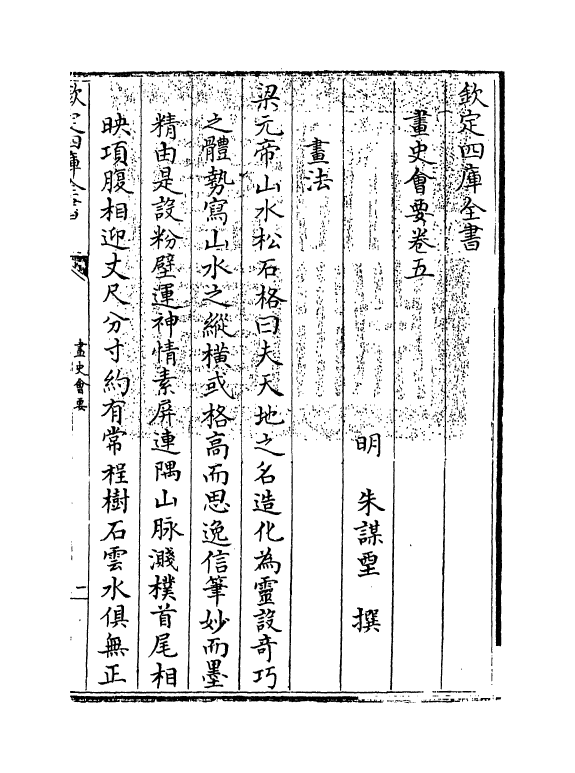 欽定四庫全書
畫史會要卷五
明 朱謀垔 撰
畫法
梁元帝山水松石格曰夫天地之名造化為靈設奇巧
之體勢寫山水之縱横或格高而思逸信筆妙而墨
精由是設粉壁運神情素屏連隅山脉濺樸首尾相
映項腹相迎丈尺分寸約有常程樹石雲水俱無正
欽定四庫全書
畫史會要